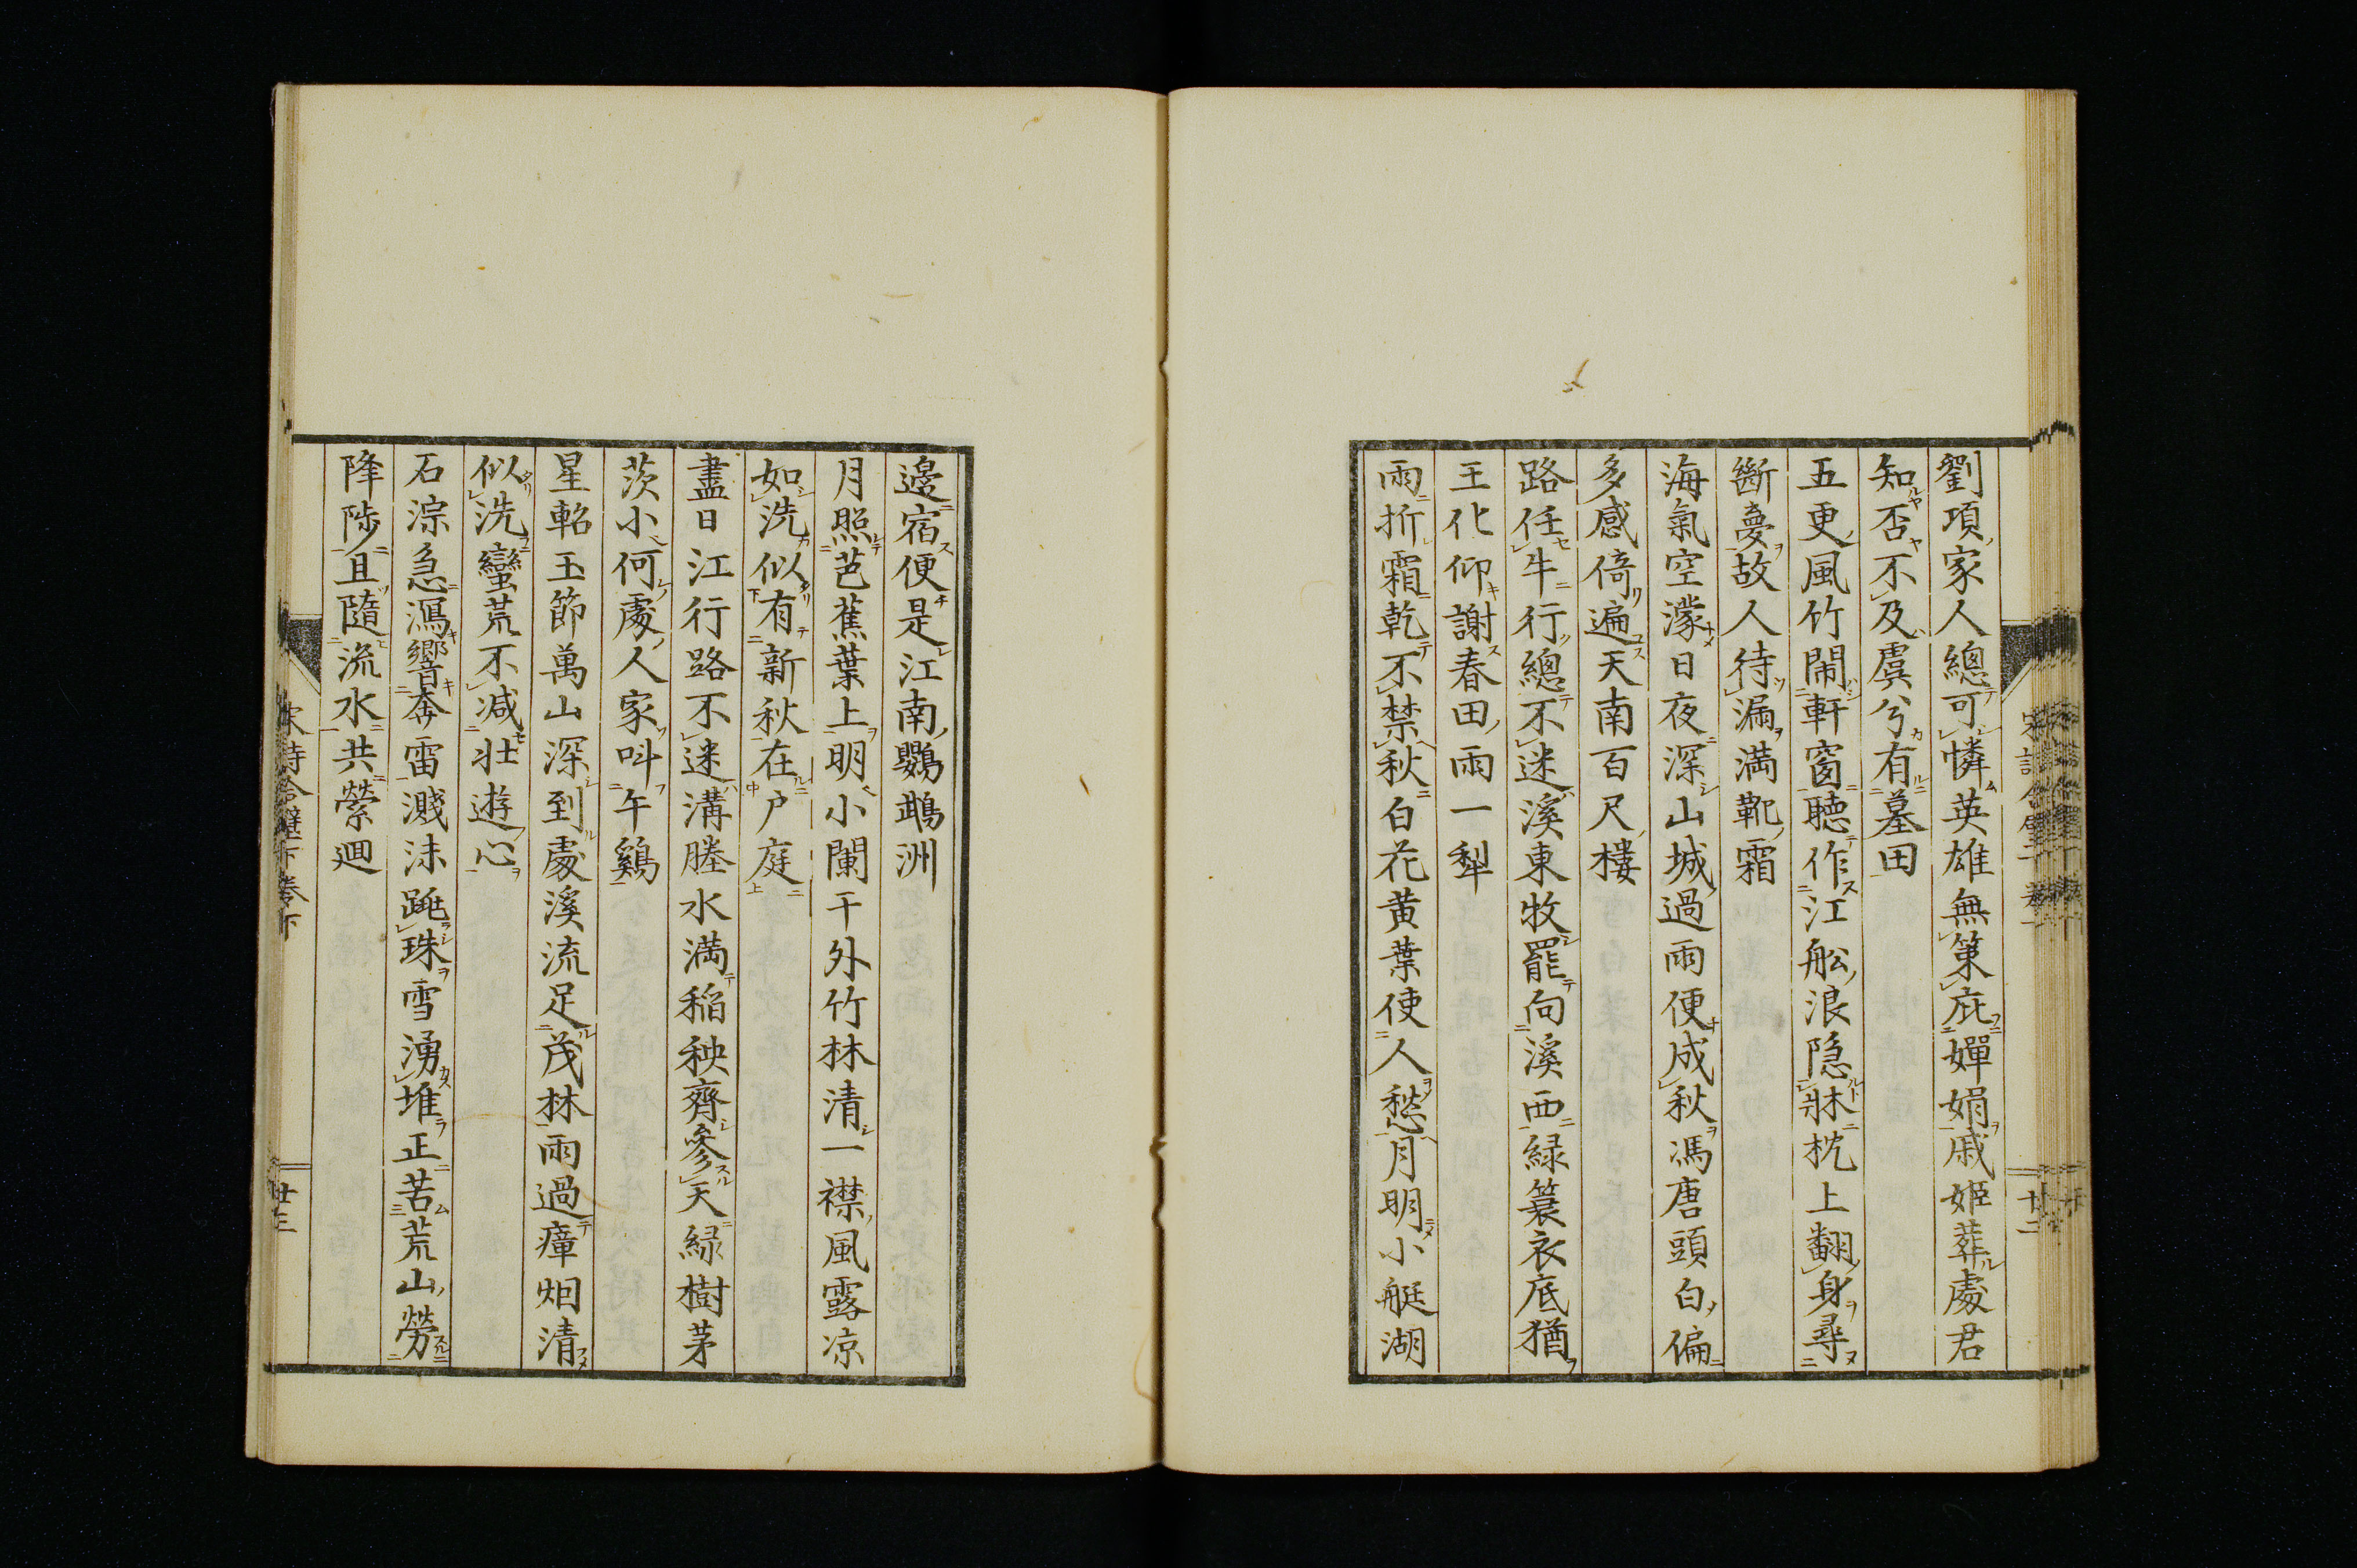 劉項家人總可憐英雄無策庇嬋娟戚姬葬處君
知否不及虞兮有墓田
五更風竹鬧軒窗聽作江舩浪隐牀枕上翻身尋
斷夢故人待漏満靴霜
海氣空濛日夜深山城過雨便成秋馮唐頭白偏
多感倚遍天南百尺樓
路任牛行總不迷溪東牧罷向溪西緑蓑衣底猶
王化仰謝春田雨一犂
雨折霜乾不禁秋白花黄葉使人愁月明小艇湖
邉宿便是江南鸚鵡洲
月照芭蕉葉上明小闌干外竹林清一襟風露凉
如洗似有新秋在户庭
盡日江行路不迷溝塍水満稲秧齊參天緑樹茅
茨小何處人家叫午鷄
星軺玉節萬山深到處溪流足茂林雨過瘴烟清
似洗蠻荒不减壮遊心
石淙急瀉響奔雷濺沫跳珠雪湧堆正苦荒山勞
降陟且隨流水共縈迴
廿二
廿三